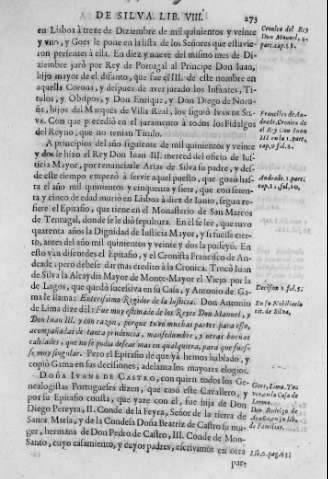 DE SILVA. LIB. VIII. 273
en Lisboa à trece de Diziembre de mil quinientos y veinte
y vno, y Goes le pone en la lista de los Señores que estuvie-
ron presentes à ella. En diez y nueve del mismo mes de Di-
ziembre juró por Rey de Portugal al Principe Don Iuan,
hijo mayor de el difunto, que fue el III. de este nombre en
aquella Corona, y despues de aver jurado los Infantes, Ti-
tulos, y Obispos, y Don Enrique, y Don Diego de Noro-
ña, hijos del Marquès de Villa Real, los siguió IVAN DE SIL-
VA. Con que precedió en el juramento à todos los Fidalgos
del Reyno, que no tenian Titulo.
A principios del año siguiente de mil quinientos y veinte
y dos le hizo el Rey Don Iuan III. merced del oficio de Ius-
ticia Mayor, por renunciacion de Arias de Silva su padre, y des-
de este tiempo empezó à servir aquel puesto, que gozó has-
ta el año mil quinientos y cinquenta y siete, que con seten-
ta y cinco de edad murió en Lisboa à diez de Iunio, segun re-
fiere el Epitafio, que tiene en el Monasterio de San Marcos
de Tentugal, donde se le dió sepultura. En él se lee, que tuvo
quarenta años la Dignidad de Iusticia Mayor, y si fuesse cier-
to, antes del año mil quinientos y veinte y dos la posseyó. En
esto vàn discordes el Epitafio, y el Cronista Francisco de An-
drade; pero debese dar mas credito à la Cronica. Trocó Iuan
de Silva la Alcaydia Mayor de Monte-Mayor el Viejo por la
de Lagos, que quedó sucessiva en su Casa, y Antonio de Ga-
ma le llama: Enterissimo Regidor de la Iusticia. Don Antonio
de Lima dize dél: Fue muy estimado de los Reyes Don Manuel, y
Don Iuan III. y con razon, porque tuvo muchas partes para esso,
acompañadas de tanta prudencia, mansedumbre, y otras buenas
calidades, que no se podia desear mas en qualquiera, para que fuesse
muy singular. Pero el Epitafio de que yà hemos hablado, y
copió Gama en sus decisiones, adelanta los mayores elogios.
DOÑA IVANA DE CASTRO, con quien todos los Ge-
nealogistas Portugueses dizen, que casó este Cavallero, y
por su Epitafio consta, que yaze con el, fue hija de Don
Diego Pereyra, II. Conde de la Feyra, Señor de la tierra de
Santa Maria, y de la Condesa Doña Beatriz de Castro su mu-
ger, hermana de Don Pedro de Castro, III. Conde de Mon-
Santo, cuyo casamiento, y cuyos padres, escrivimos en otra
par-
Cronica del Rey
Don Manuel, 4.
Francisco de An-
drade, Cronica de
el Rey Don Iuan
III. en la 1. part.
cap. 9. fol. 8.
Andrade 1. part.
Decision 1. fol. 5.
En su Nobiliario
tit. de Silva.
Goes, Lima, To-
var, en la Casa de